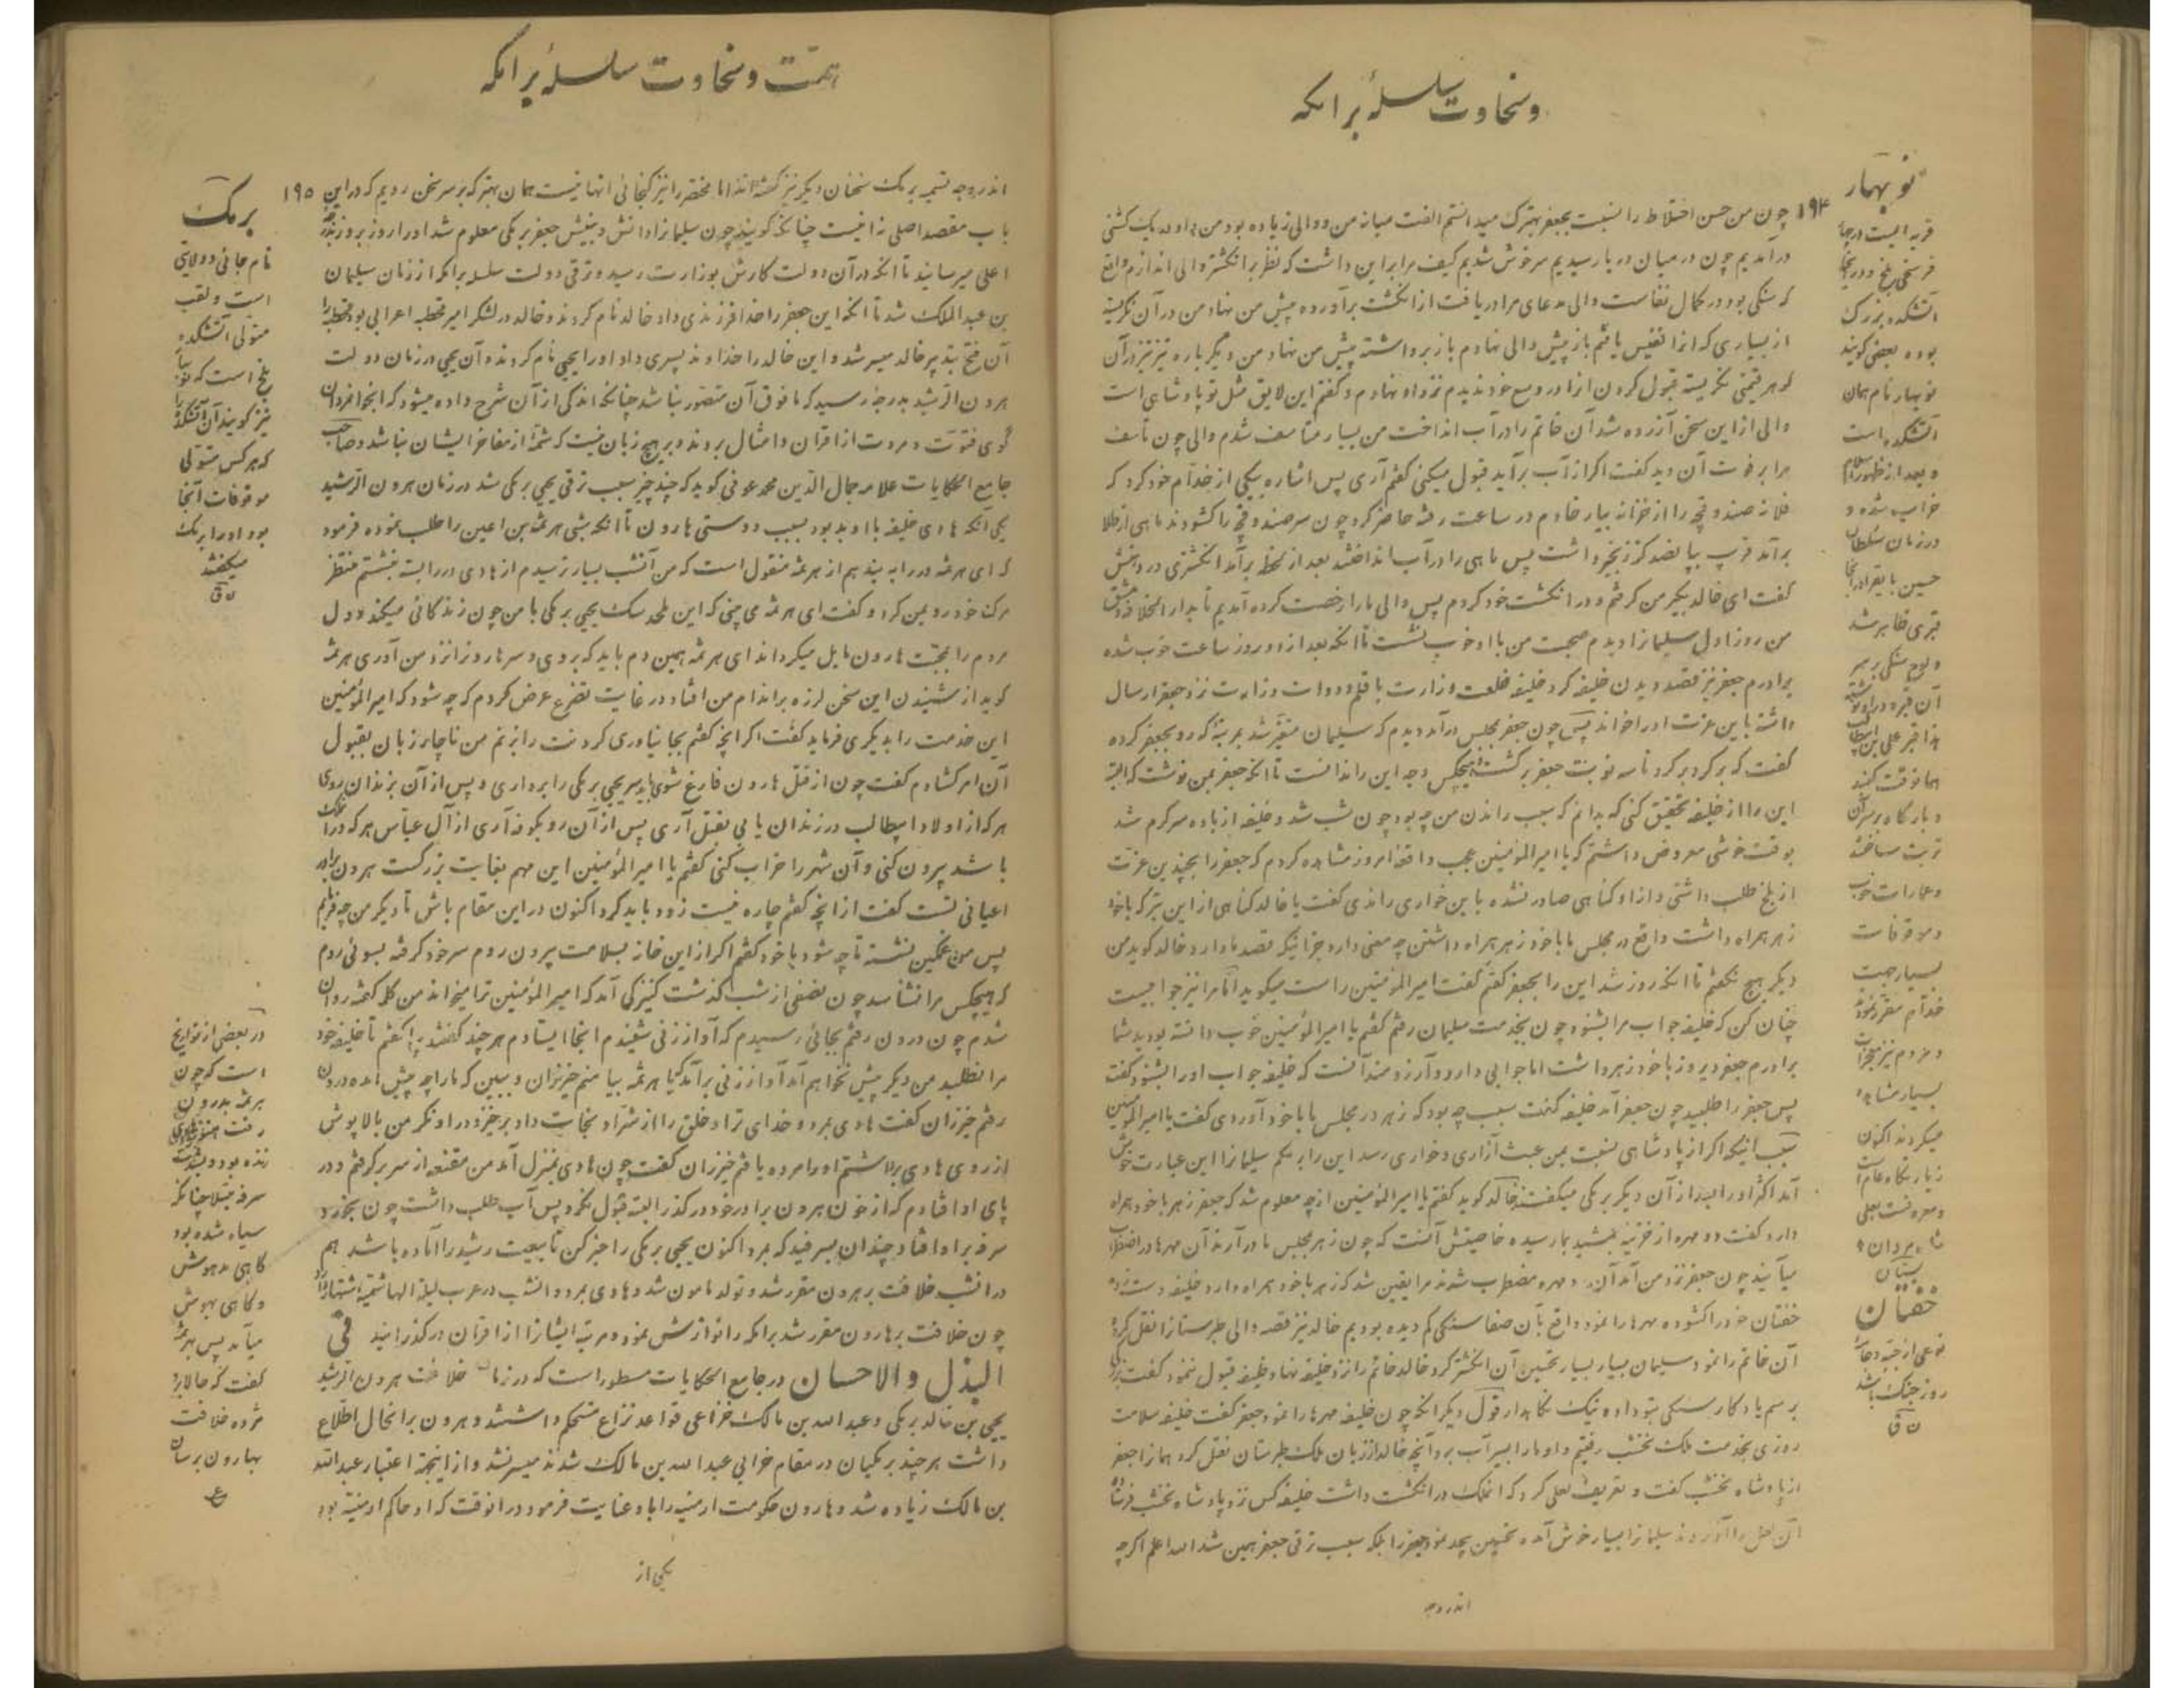 وسخاوت سلسلهٔ برامکه
۱۹۴
چون من حسن اختلاط را نسبت بجعفر بهترک میدانستم الفت میانه من و والی زیاده بود من و او در یک کشتی
درآمدیم چون در میان دریا رسیدیم سرخوش شدیم کیف مرا بر این داشت که نظر بر انگشتر والی اندازم واقع
که سنگی بود در کمال نفاست والی مدعای مرا دریافت از انگشت برآورده پیش من نهاد من در آن نگریسته
از بسیاری که آنرا نفیس یافتم باز پیش والی نهادم باز برداشته پیش من نهاد من دیگر باره نیز در آن
گوهر قیمتی نگریسته قبول کردن آنرا در وسع خود ندیدم نزد او نهادم و گفتم این لایق مثل تو پادشاهی است
والی از این سخن آزرده شد آن خاتم را در آب انداخت من بسیار متأسف شدم والی چون تأسف
مرا بر فوت آن دید گفت اگر از آب برآید قبول میکنی گفتم آری پس اشاره بیکی از خدام خود کرد که
فلان صندوقچه را از خزانه بیار خادم در ساعت رفته حاضر کرد چون سر صندوقچه را گشودند ماهی از طلا
برآمد قریب بپانصد گز زنجیر داشت پس ماهی را در آب انداختند بعد از لحظه برآمد انگشتری در دهنش
گفت ای خالد بگیر من گرفتم و در انگشت خود کردم پس والی ما را رخصت کرده آمدیم تا بدار الخلافه دمشق
من روز اول سلیمانرا دیدم صحبت من با او خوب نشست تا آنکه بعد از دو روز ساعت خوب شده
برادرم جعفر نیز قصد دیدن خلیفه کرد خلیفه خلعت وزارت با قلم و دوات وزارت نزد جعفر ارسال
داشته باین عزت او را خواند پس چون جعفر بمجلس درآمد دیدم که سلیمان متغیر شد بمرتبهٔ که رو بجعفر کرده
گفت که برگرد برگرد تا سه نوبت جعفر برگشت هیچکس وجه این را ندانست تا آنکه جعفر بمن نوشت که البته
این را از خلیفه تحقیق کنی که بدانم که سبب راندن من چه بود چون شب شد و خلیفه از باده سرگرم شد
بوقت خوشی معروض داشتم که یا امیر المؤمنین عجب واقعهٔ امروز مشاهده کردم که جعفر را بچندین عزت
از بلخ طلب داشتی و از او گناهی صادر نشده باین خواری راندی گفت یا خالد گناهی از این بتر که با خود
زهر همراه داشت واقع در مجلس ما با خود زهر همراه داشتن چه معنی دارد جز اینکه قصد ما دارد خالد گوید من
دیگر هیچ نگفتم تا آنکه روز شد این را بجعفر گفتم گفت امیر المؤمنین راست میگوید اما مرا نیز جوابیست
چنان کن که خلیفه جواب مرا بشنود چون بخدمت سلیمان رفتم گفتم یا امیر المؤمنین خوب دانسته بودید شما
برادرم جعفر دیروز با خود زهر داشت اما جوابی دارد و آرزومند آنست که خلیفه جواب او را بشنود گفت
پس جعفر را طلبید چون جعفر آمد خلیفه گفت سبب چه بود که زهر در مجلس ما با خود آوردی گفت یا امیر المؤمنین
سبب اینکه اگر از پادشاهی نسبت بمن عبث آزاری و خواری رسد این را بر یکم سلیمانرا این عبارت خوش
آمد اکثر او را بعد از آن دیگر برمکی میگفتند خالد گوید گفتم یا امیر المؤمنین از چه معلوم شد که جعفر زهر با خود همراه
دارد گفت دو مهره از خزینه جمشید بما رسیده خاصیتش آنست که چون زهر بمجلس ما درآرند آن مهرها در اضطراب
میآیند چون جعفر نزد من آمد آن دو مهره مضطرب شدند مرا یقین شد که زهر با خود همراه دارد خلیفه دست زده
خفتان خود را گشوده مهرها را نمود واقع بآن صفا سنگی کم دیده بودیم خالد نیز قصه والی طبرستانرا نقل کرده
آن خاتم را نمود سلیمان بسیار بسیار تحسین آن انگشتر کرد خالد خاتم را نزد خلیفه نهاد خلیفه قبول ننمود گفت
برسم یادگار سنگی بتو داده نیک نگاهدار قول دیگر آنکه چون خلیفه مهرها را نمود جعفر گفت خلیفه سلامت
روزی بخدمت ملک نخشب رفتیم و او ما را بسیر آب برد آنچه خالد از زبان ملک طبرستان نقل کرد همانرا جعفر
از پادشاه نخشب گفت و تعریف لعلی کرد که آنملک در انگشت داشت خلیفه کس نزد پادشاه نخشب فرستاده
آن لعل را آوردند سلیمانرا بسیار خوش آمده تحسین بیحد نمود جعفر را بلکه سبب ترقی جعفر همین شد الله اعلم اگرچه
اندر وجه
نوبهار
قریه ایست در چهار
فرسخی بلخ و در آنجا
آتشکده بزرگ
بوده بعضی گویند
نوبهار نام همان
آتشکده است
و بعد از ظهور اسلام
خراب شده و
در زمان سلطان
حسین بایقرا در آنجا
قبری ظاهر شد
و لوح سنگی بر سر
آن قبر در او نوشته
هذا قبر علی بن ابیطالب
همانوقت گنبد
و بارگاه بر سر آن
تربت ساختند
و عمارات خوب
و موقوفات
بسیار جهت
خدام مقرر نموده
و مردم نیز معجزات
بسیار مشاهده
میکردند اکنون
زیارتگاه عام است
و معروفست بعلی
شاه مردان
خفتان
نوعی از جبه و جامهٔ
روز جنگ باشد
ن ق
همت وسخاوت سلسلهٔ برامکه
۱۹۵
اندر وجه تسمیه برمک سخنان دیگر نیز گفته‌اند اما مختصر را نیز گنجائی آنها نیست همان بهتر که بر سر سخن رویم که در این
باب مقصد اصلی ز آنیست چنانکه گویند چون سلیمانرا دانش و بینش جعفر برمکی معلوم شد او را روز بروز بدرجهٔ
اعلی میرسانید تا آنکه در آن دولت کارش بوزارت رسید و ترقی دولت سلسله برامکه از زمان سلیمان
بن عبد الملک شد تا آنکه این جعفر را خدا فرزندی داد خالد نام کردند و خالد در لشکر امیر قحطبه اعرابی بود قحطبه را
آن فتح بتدبیر خالد میسر شد و این خالد را خداوند پسری داد او را یحیی نام کردند و آن یحیی در زمان دولت
هرون الرشید بدرجهٔ رسید که مافوق آن متصور نباشد چنانکه اندکی از آن شرح داده میشود که آنجوانمردان
گوی فتوت و مروت از اقران و امثال بردند و بر هیچ زبان نیست که شمهٔ از مفاخر ایشان نباشد و صاحب
جامع الحکایات علامه جمال الدین محمد عوفی گوید که چند چیز سبب ترقی یحیی برمکی شد در زمان هرون الرشید
یکی آنکه هادی خلیفه با او بد بود بسبب دوستی هارون تا آنکه شبی هرثمة بن اعین را طلب نموده فرمود
که ای هرثمه در را به بند هم از هرثمه منقول است که من آنشب بسیار ترسیدم از هادی در را بسته نشستم منتظر
مرگ خود رو بمن کرد و گفت ای هرثمه می بینی که این ملحد سگ یحیی برمکی با من چون زندگانی میکند و دل
مردم را بمحبت هارون مایل میگرداند ای هرثمه همین دم باید که بروی و سر هارونرا نزد من آوری هرثمه
گوید از شنیدن این سخن لرزه بر اندام من افتاد در غایت تضرع عرض کردم که چه شود که امیر المؤمنین
این خدمت را بدیگری فرماید گفت اگر آنچه گفتم بجا نیاوری گردنت را بزنم من ناچار زبان بقبول
آن امر گشادم گفت چون از قتل هارون فارغ شوی باید سر یحیی برمکی را برداری و پس از آن بزندان روی
هر که از اولاد ابیطالب در زندان یابی بقتل آری پس از آن رو بکوفه آری از آل عباس هر که در آنملک
باشد بیرون کنی و آن شهر را خراب کنی گفتم یا امیر المؤمنین این مهم بغایت بزرگست هرون برادر
اعیانی تست گفت از آنچه گفتم چاره نیست زود باید کرد اکنون در این مقام باش تا دیگر من چه فرمایم
پس من غمگین نشسته تا چه شود با خود گفتم اگر از این خانه بسلامت بیرون روم سر خود گرفته بسوئی روم
که هیچکس مرا نشناسد چون نصفی از شب گذشت کنیزکی آمد که امیر المؤمنین ترا میخواند من کلمه گفته روان
شدم چون درون رفتم بجائی رسیدم که آواز زنی شنیدم آنجا ایستادم هر چند گفتند بیا گفتم تا خلیفه خود
مرا نطلبد من دیگر پیش نخواهم آمد آواز زنی برآمد که یا هرثمه بیا منم خیزران و ببین که ما را چه پیش آمده درون
رفتم خیزران گفت هادی بمرد و خدای ترا و خلق را از شر او نجات داد برخیز و در او نگر من بالاپوش
از روی هادی برداشتم او را مرده یافتم خیزران گفت چون هادی بمنزل آمد من مقنعه از سر برگرفتم و در
پای او افتادم که از خون هرون برادر خود درگذر البته قبول نکرد پس آب طلب داشت چون بخورد
سرفه بر او افتاد چندان بسرفید که بمرد اکنون یحیی برمکی را خبر کن تا بیعت رشید را آماده باشد هم
در آنشب خلافت بر هرون مقرر شد و تولد مامون شد و هادی بمرد و آنشب در عرب لیلة الهاشمیه اشتهار دارد
چون خلافت بر هارون مقرر شد برامکه را نوازش نمود و مرتبه ایشانرا از اقران درگذرانید فی
البذل والاحسان در جامع الحکایات مسطور است که در زمان خلافت هرون الرشید
یحیی بن خالد برمکی و عبد الله بن مالک خزاعی قواعد نزاع مستحکم داشتند و هرون بر آنحال اطلاع
داشت هر چند برمکیان در مقام خرابی عبد الله بن مالک شدند میسر نشد و از اینجهة اعتبار عبد الله
بن مالک زیاده شد و هارون حکومت ارمنیه را باو عنایت فرمود در آنوقت که او حاکم ارمنیه بود
یکی از
برمک
نام جائی و ولایتی
است و لقب
متولی آتشکده
بلخ است که نوبهار
نیز گویند آن آتشکده را
که هر کس متولی
موقوفات آنجا
بود او را برمک
میگفتند
ن ق
در بعضی از تواریخ
است که چون
هرثمه بدرون
رفت هنوز هادی
زنده بود و بشدت
سرفه مبتلا چنانکه
سیاه شده بود
گاهی مدهوش
و گاهی بهوش
میآمد پس بهرثمه
گفت که حالا برو
مژده خلافت
بهارون برسان
ع